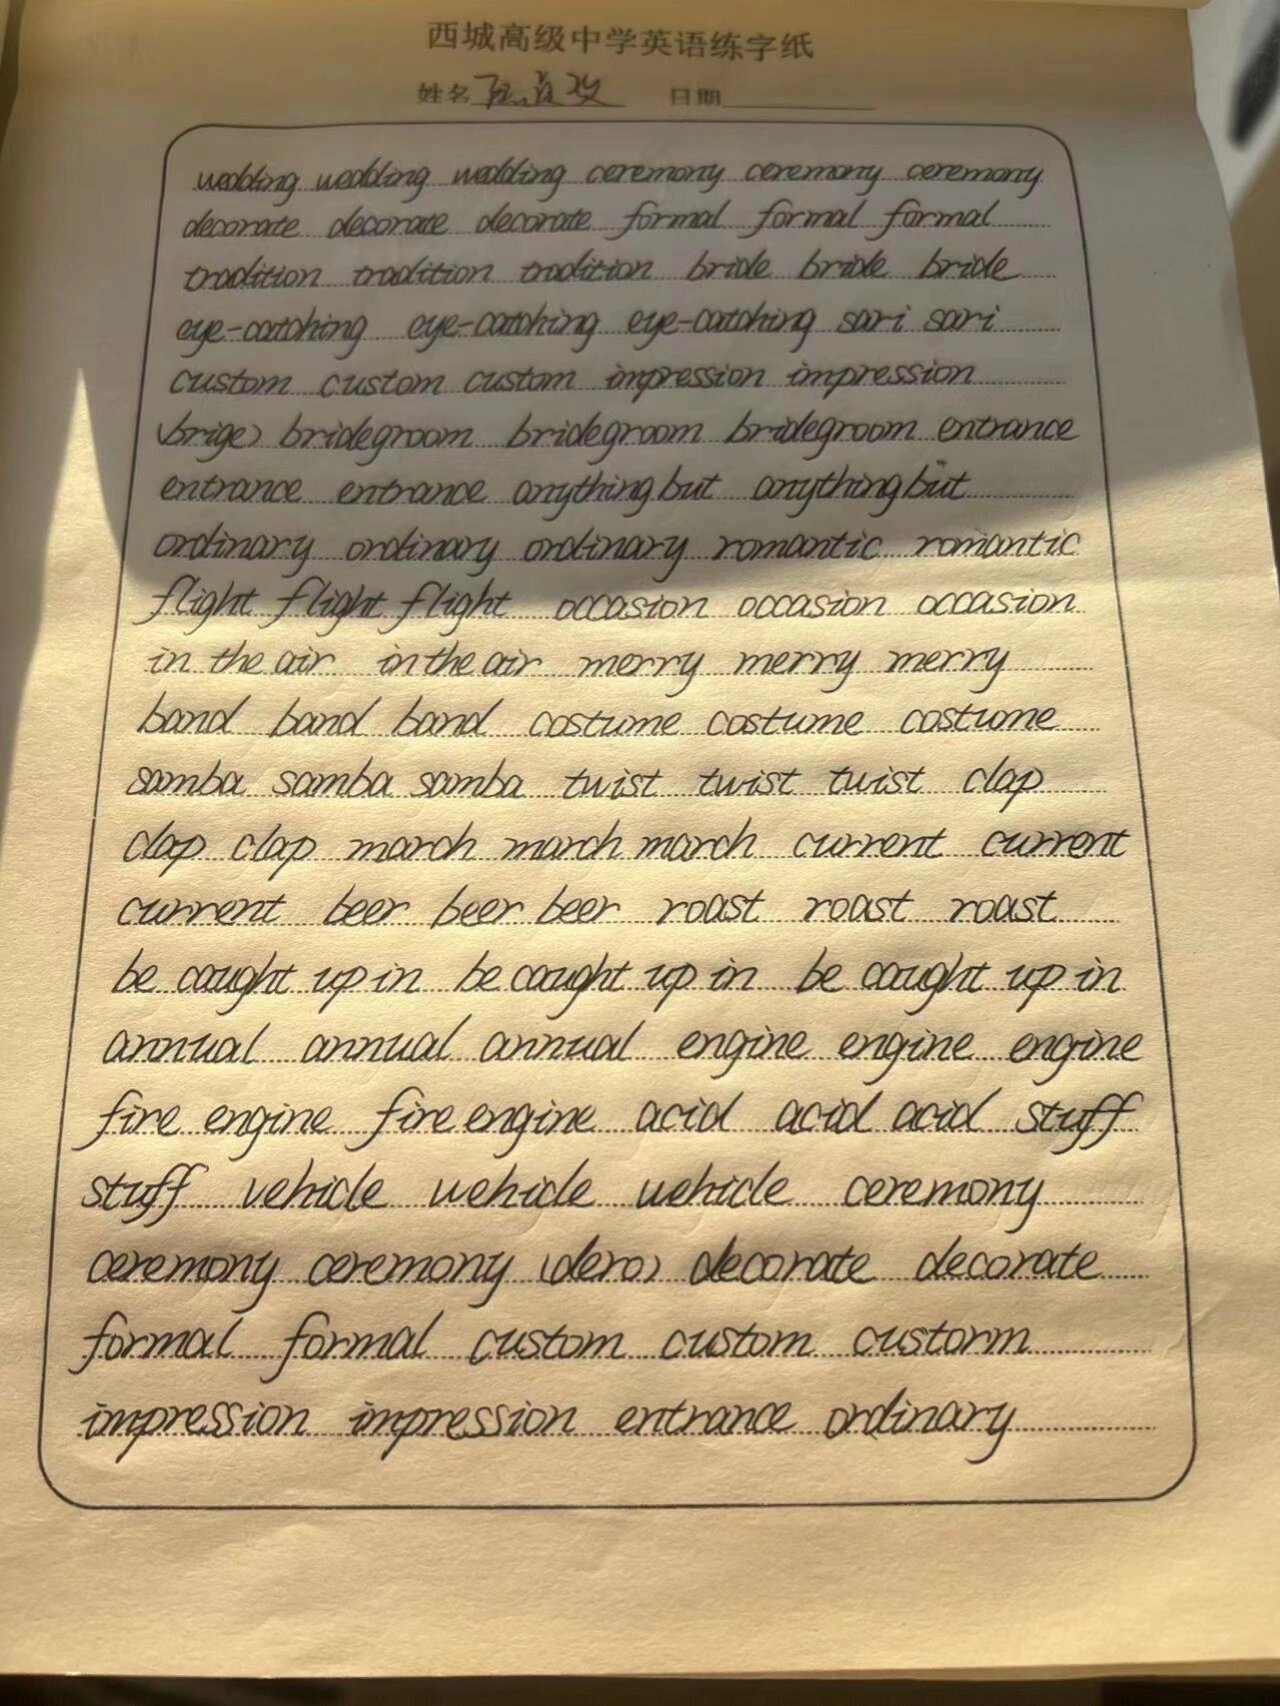 西城高级中学英语练字纸
姓名 日期
wedding wedding wedding ceremony ceremony ceremony
decorate decorate decorate formal formal formal
tradition tradition tradition bride bride bride
eye-catching eye-catching eye-catching sari sari
custom custom custom impression impression
(brige) bridegroom bridegroom bridegroom entrance
entrance entrance anything but anything but
ordinary ordinary ordinary romantic romantic
flight flight flight occasion occasion occasion
in the air in the air merry merry merry
band band band costume costume costume
samba samba samba twist twist twist clap
clap clap march march march current current
current beer beer beer roast roast roast
be caught up in be caught up in be caught up in
annual annual annual engine engine engine
fire engine fire engine acid acid acid stuff
stuff vehicle vehicle vehicle ceremony
ceremony ceremony (dero) decorate decorate
formal formal custom custom custorm
impression impression entrance ordinary